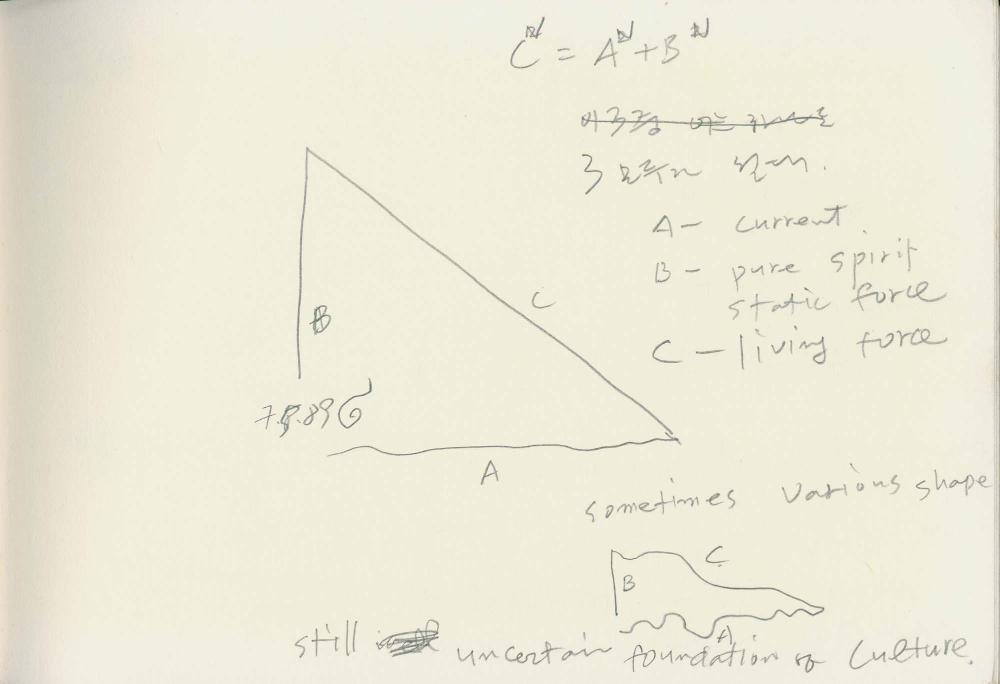 C = A + B
A - current
B - pure spirit
static force
C - living force
C
B
A
sometimes various shape
C
B
A
still uncertain foundation of Culture.